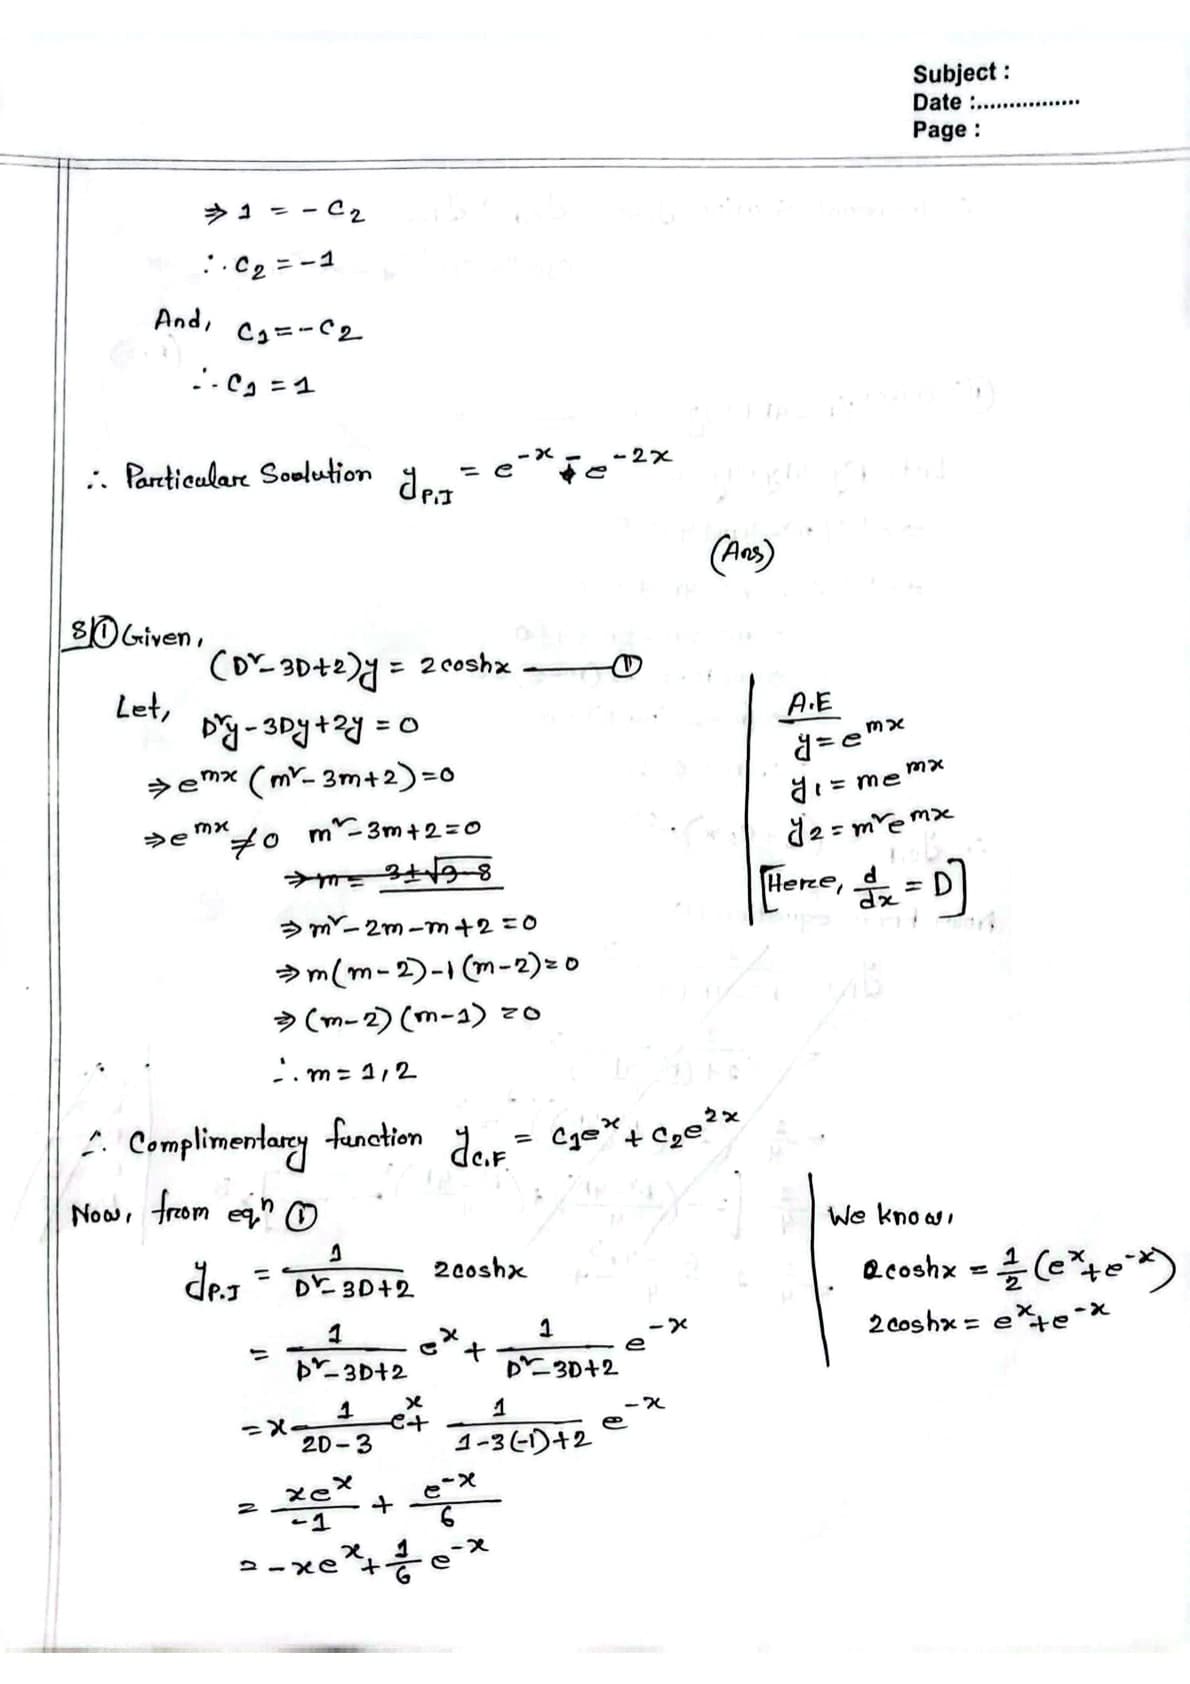 Subject :
Date :................
Page :
⇒ 1 = - C₂
∴ C₂ = -1
And, C₁ = - C₂
∴ C₁ = 1
∴ Particulare Soolution y_P.I = e^-x - e^-2x
(Ans)
8|① Given,
(D² - 3D + 2)y = 2coshx ——— ①
Let,
D²y - 3Dy + 2y = 0
⇒ e^mx (m² - 3m + 2) = 0
⇒ e^mx ≠ 0 m² - 3m + 2 = 0
⇒ m = 3 ± √9-8
⇒ m² - 2m - m + 2 = 0
⇒ m(m - 2) - 1(m - 2) = 0
⇒ (m - 2) (m - 1) = 0
∴ m = 1, 2
A.E
y = e^mx
y₁ = me^mx
y₂ = m²e^mx
[Here, d/dx = D]
∴ Complimentarcy function y_C.F = C₁e^x + C₂e^2x
Now, from eqⁿ ①
y_P.I = 1/(D² - 3D + 2) 2coshx
= 1/(D² - 3D + 2) e^x + 1/(D² - 3D + 2) e^-x
= x 1/(2D - 3) e^x + 1/(1 - 3(-1) + 2) e^-x
= xe^x/-1 + e^-x/6
= - xe^x + 1/6 e^-x
We know,
coshx = 1/2 (e^x + e^-x)
2coshx = e^x + e^-x